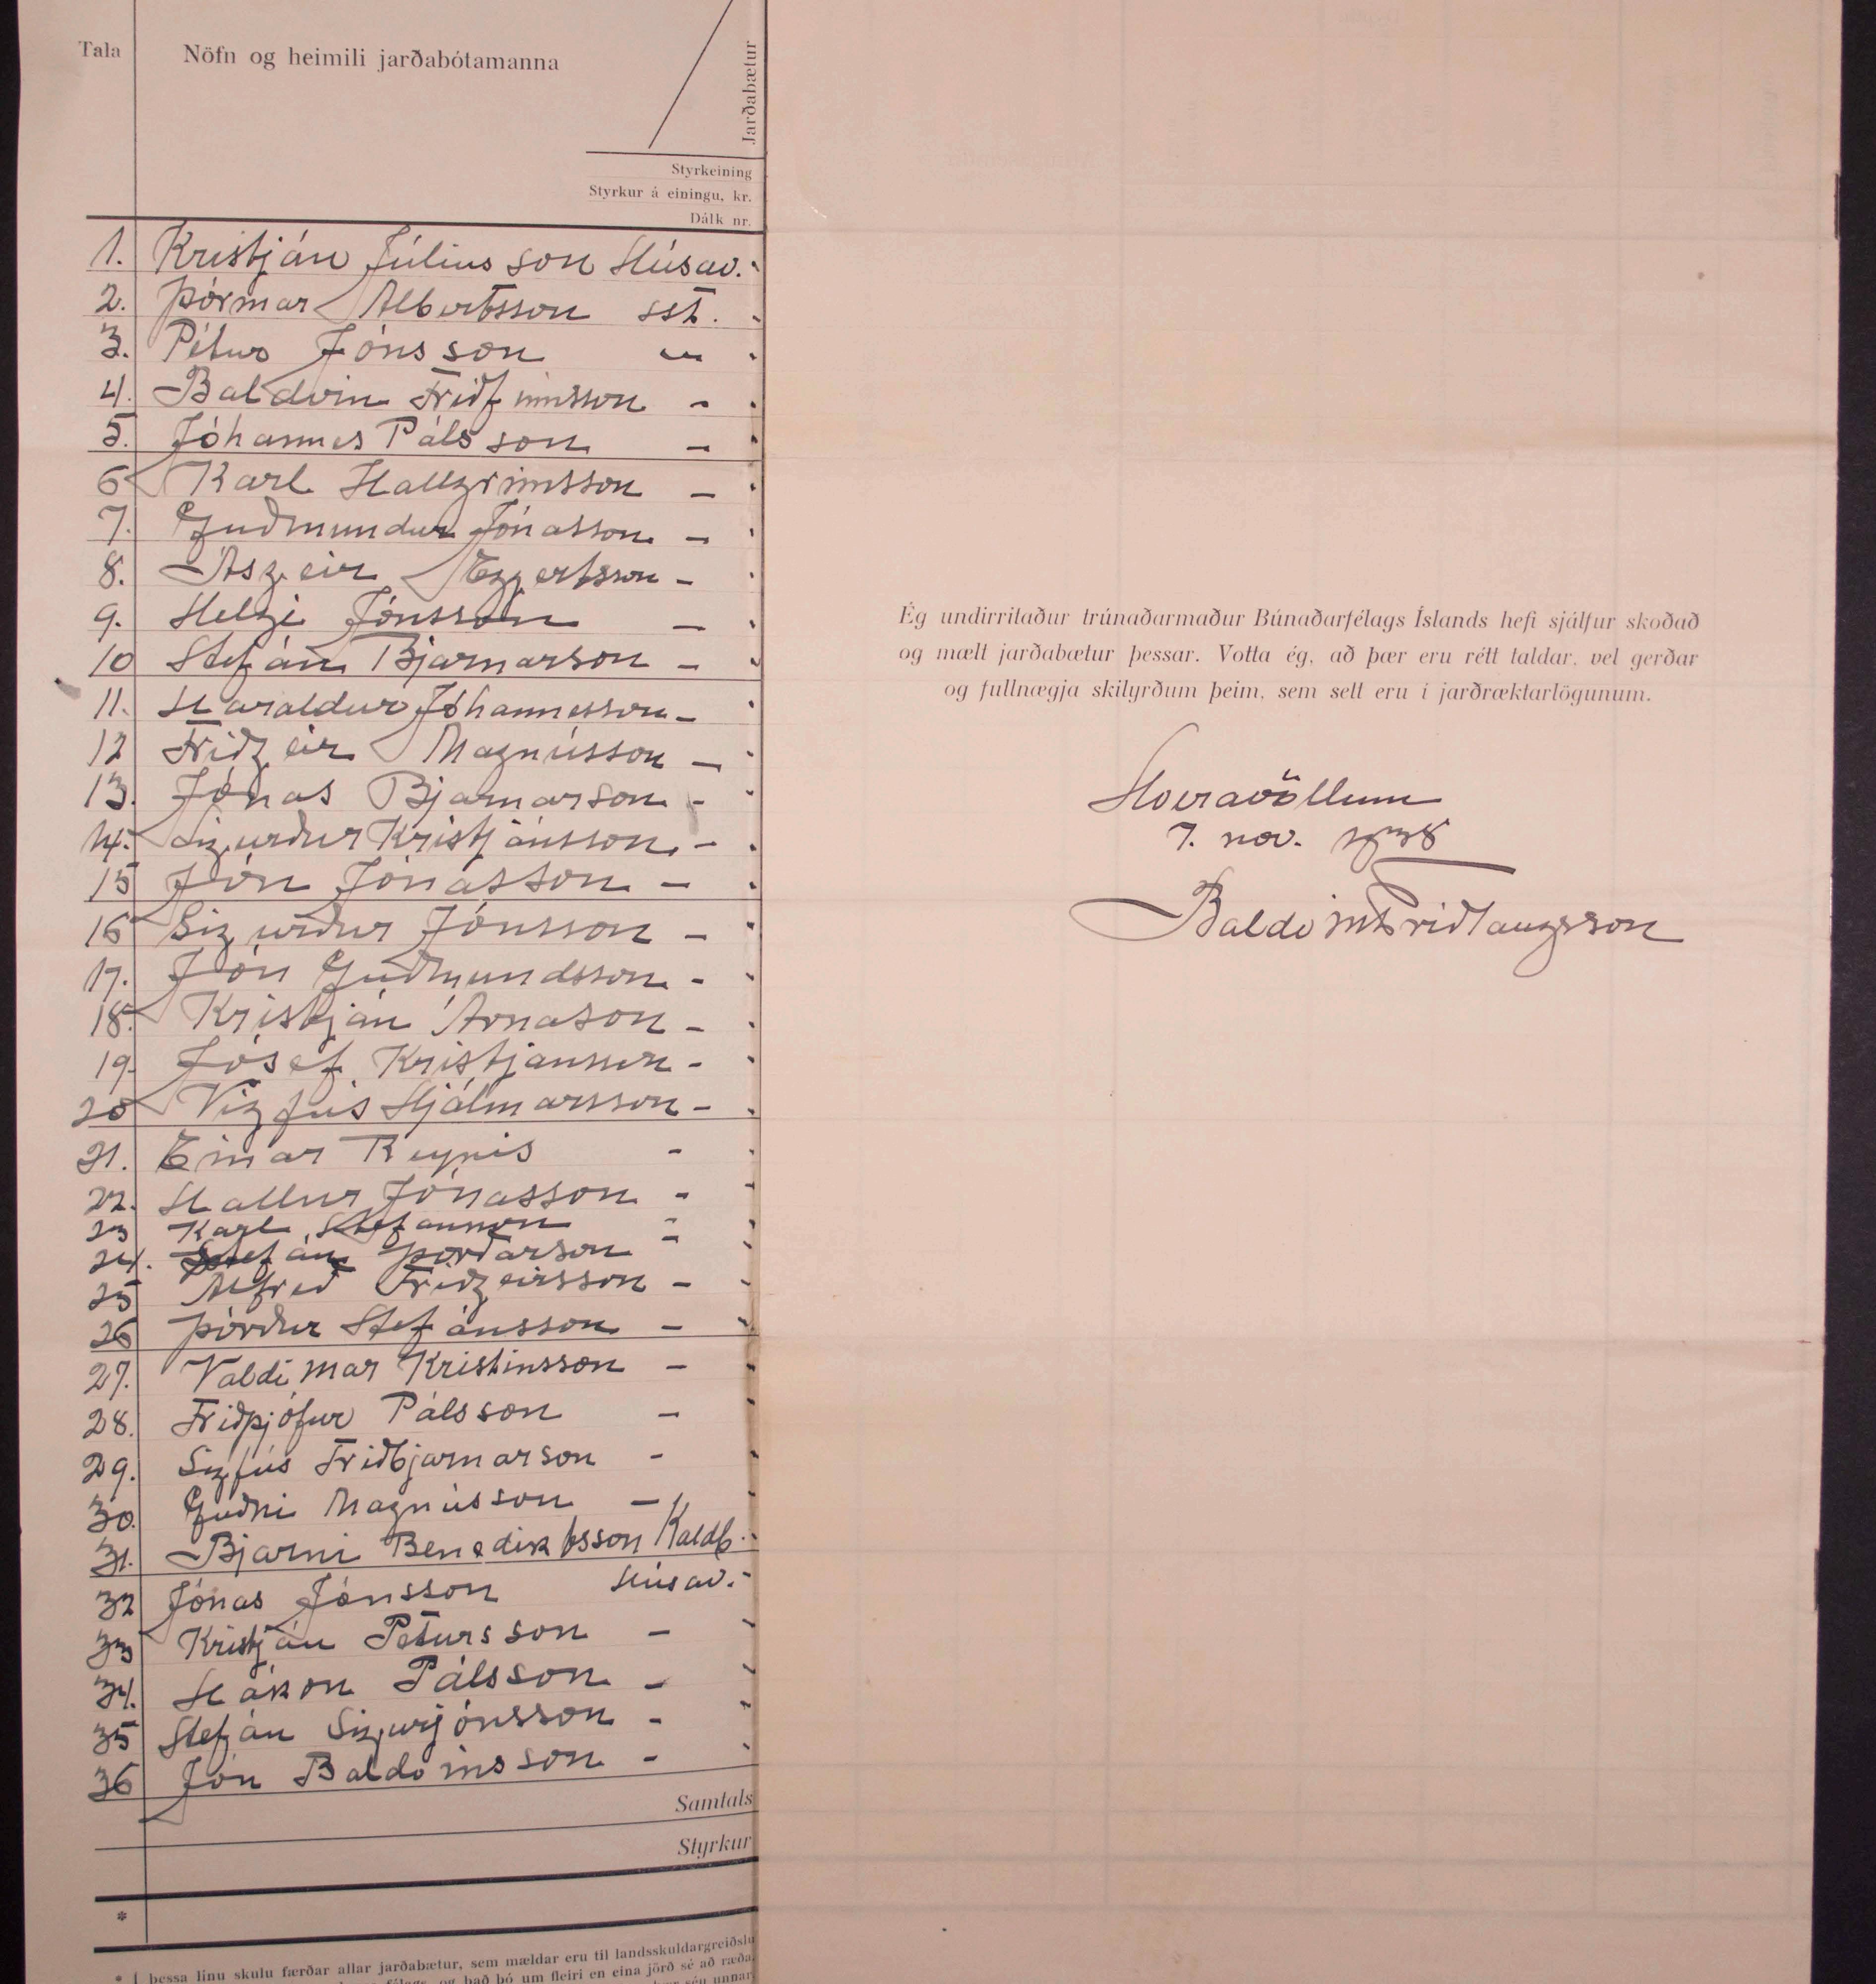 Tala
Nöfn og heimili jarðabótamanna
Jarðabætur
Styrkeining
Styrkur á einingu, kr.
Dálk nr.
1. Kristján Júlíusson Húsav.
2. Þórmar Albertsson sst.
3. Pétur Jónsson -
4. Baldvin Friðfinnsson -
5. Jóhannes Pálsson -
6 Karl Hallgrímsson -
7. Guðmundur Jónasson -
8. Ásgeir Eggertsson -
9. Helgi Jónsson -
10 Stefán Bjarnarson -
11. Haraldur Jóhannesson -
12 Friðgeir Magnússon -
13. Jónas Bjarnarson -
14. Sigurður Kristjánsson -
15 Jón Jónasson -
16 Sigurður Jónsson -
17. Jón Guðmundsson -
18. Kristján Árnason -
19. Jósef Kristjansson -
20 Vigfús Hjálmarsson -
21. Einar Reynis -
22. Hallur Jónasson -
23 Karl Stefansson -
24. Stefán Þórðarson -
25 Alfreð Friðgeirsson -
26 Þórður Stefánsson -
27. Valdimar Kristinsson -
28. Friðþjófur Pálsson -
29. Sigfús Friðbjarnarson -
30. Guðni Magnússon -
31. Bjarni Benediktsson Kaldb.
32 Jónas Jónsson Húsav.
33 Kristján Pétursson -
34. Hákon Pálsson -
35 Stefán Sigurjónsson -
36 Jón Baldvinsson -
Samtals
Styrkur
*
* Í þessa línu skulu færðar allar jarðabætur, sem mældar eru til landsskuldargreiðslu
og það þó um fleiri en eina jörð sé að ræða
séu unnar
Ég undirritaður trúnaðarmaður Búnaðarfélags Íslands hefi sjálfur skoðað
og mælt jarðabætur þessar. Votta ég, að þær eru rétt taldar, vel gerðar
og fullnægja skilyrðum þeim, sem sett eru í jarðræktarlögunum.
Hveravöllum
7. nov. 1938
Baldvin Friðlaugsson